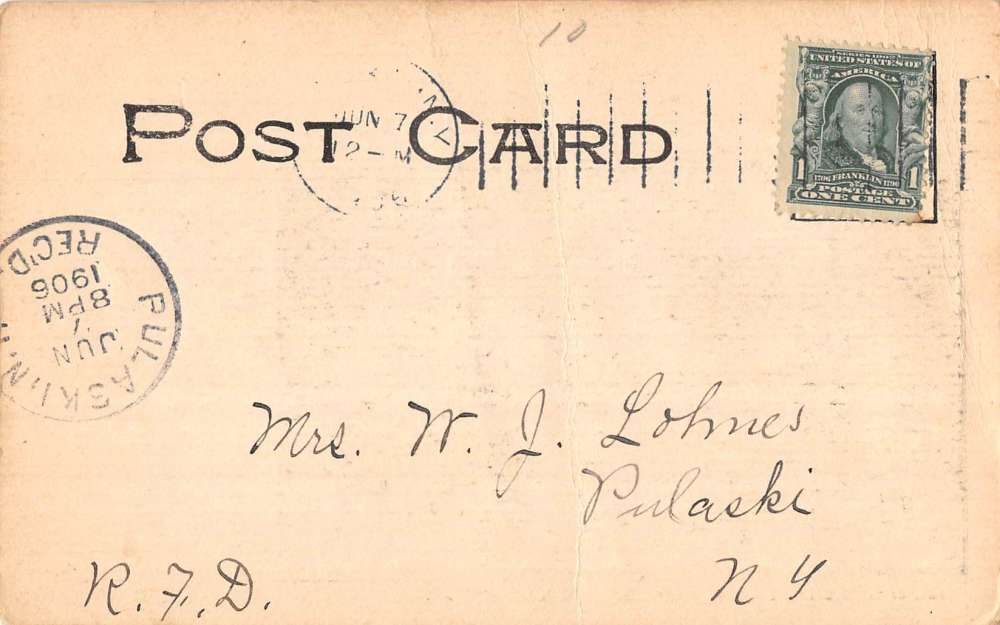 10
POST CARD
JUN 7
12-M
SERIES 1902
UNITED STATES OF
AMERICA
1706 FRANKLIN 1790
1 1
POSTAGE
ONE CENT
PULASKI, N.
JUN
7
8 PM
1906
REC'D
Mrs. W. J. Lohnes
Pulaski
N Y
R. F. D.